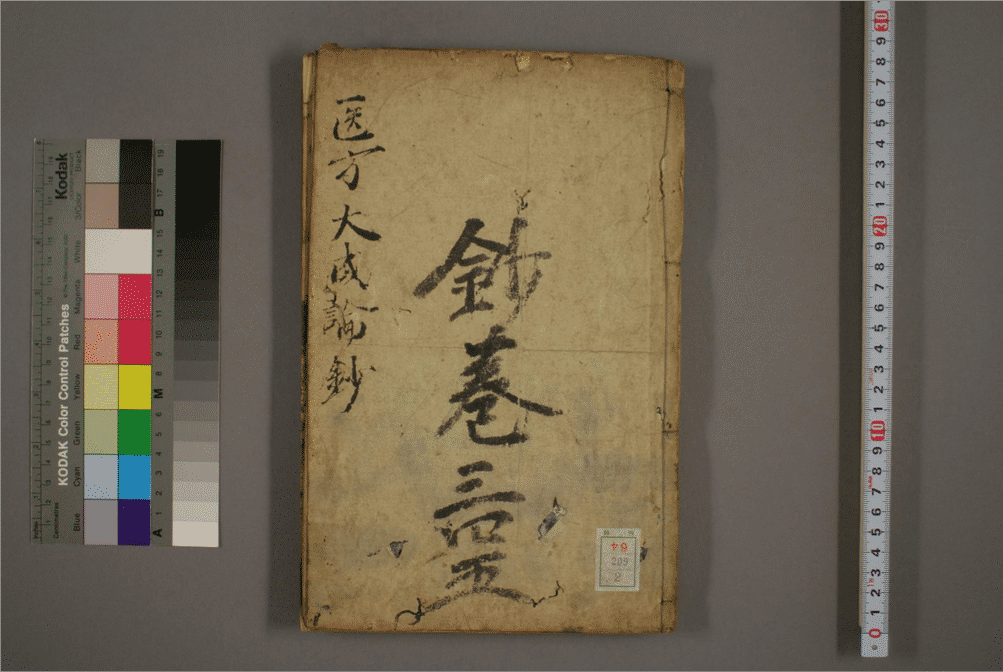 鈔巻三四五
医方大成論鈔
209
2
Kodak
KODAK Color Control Patches
Inches
Centimetres
Blue
Cyan
Green
Yellow
Red
Magenta
White
3/Color
Black
A 1 2 3 4 5 6 M 8 9 10 11 12 13 14 15 B 17 18 19
30
9
8
7
6
5
4
3
2
1
20
9
8
7
6
5
4
3
2
1
10
9
8
7
6
5
4
3
2
1
0